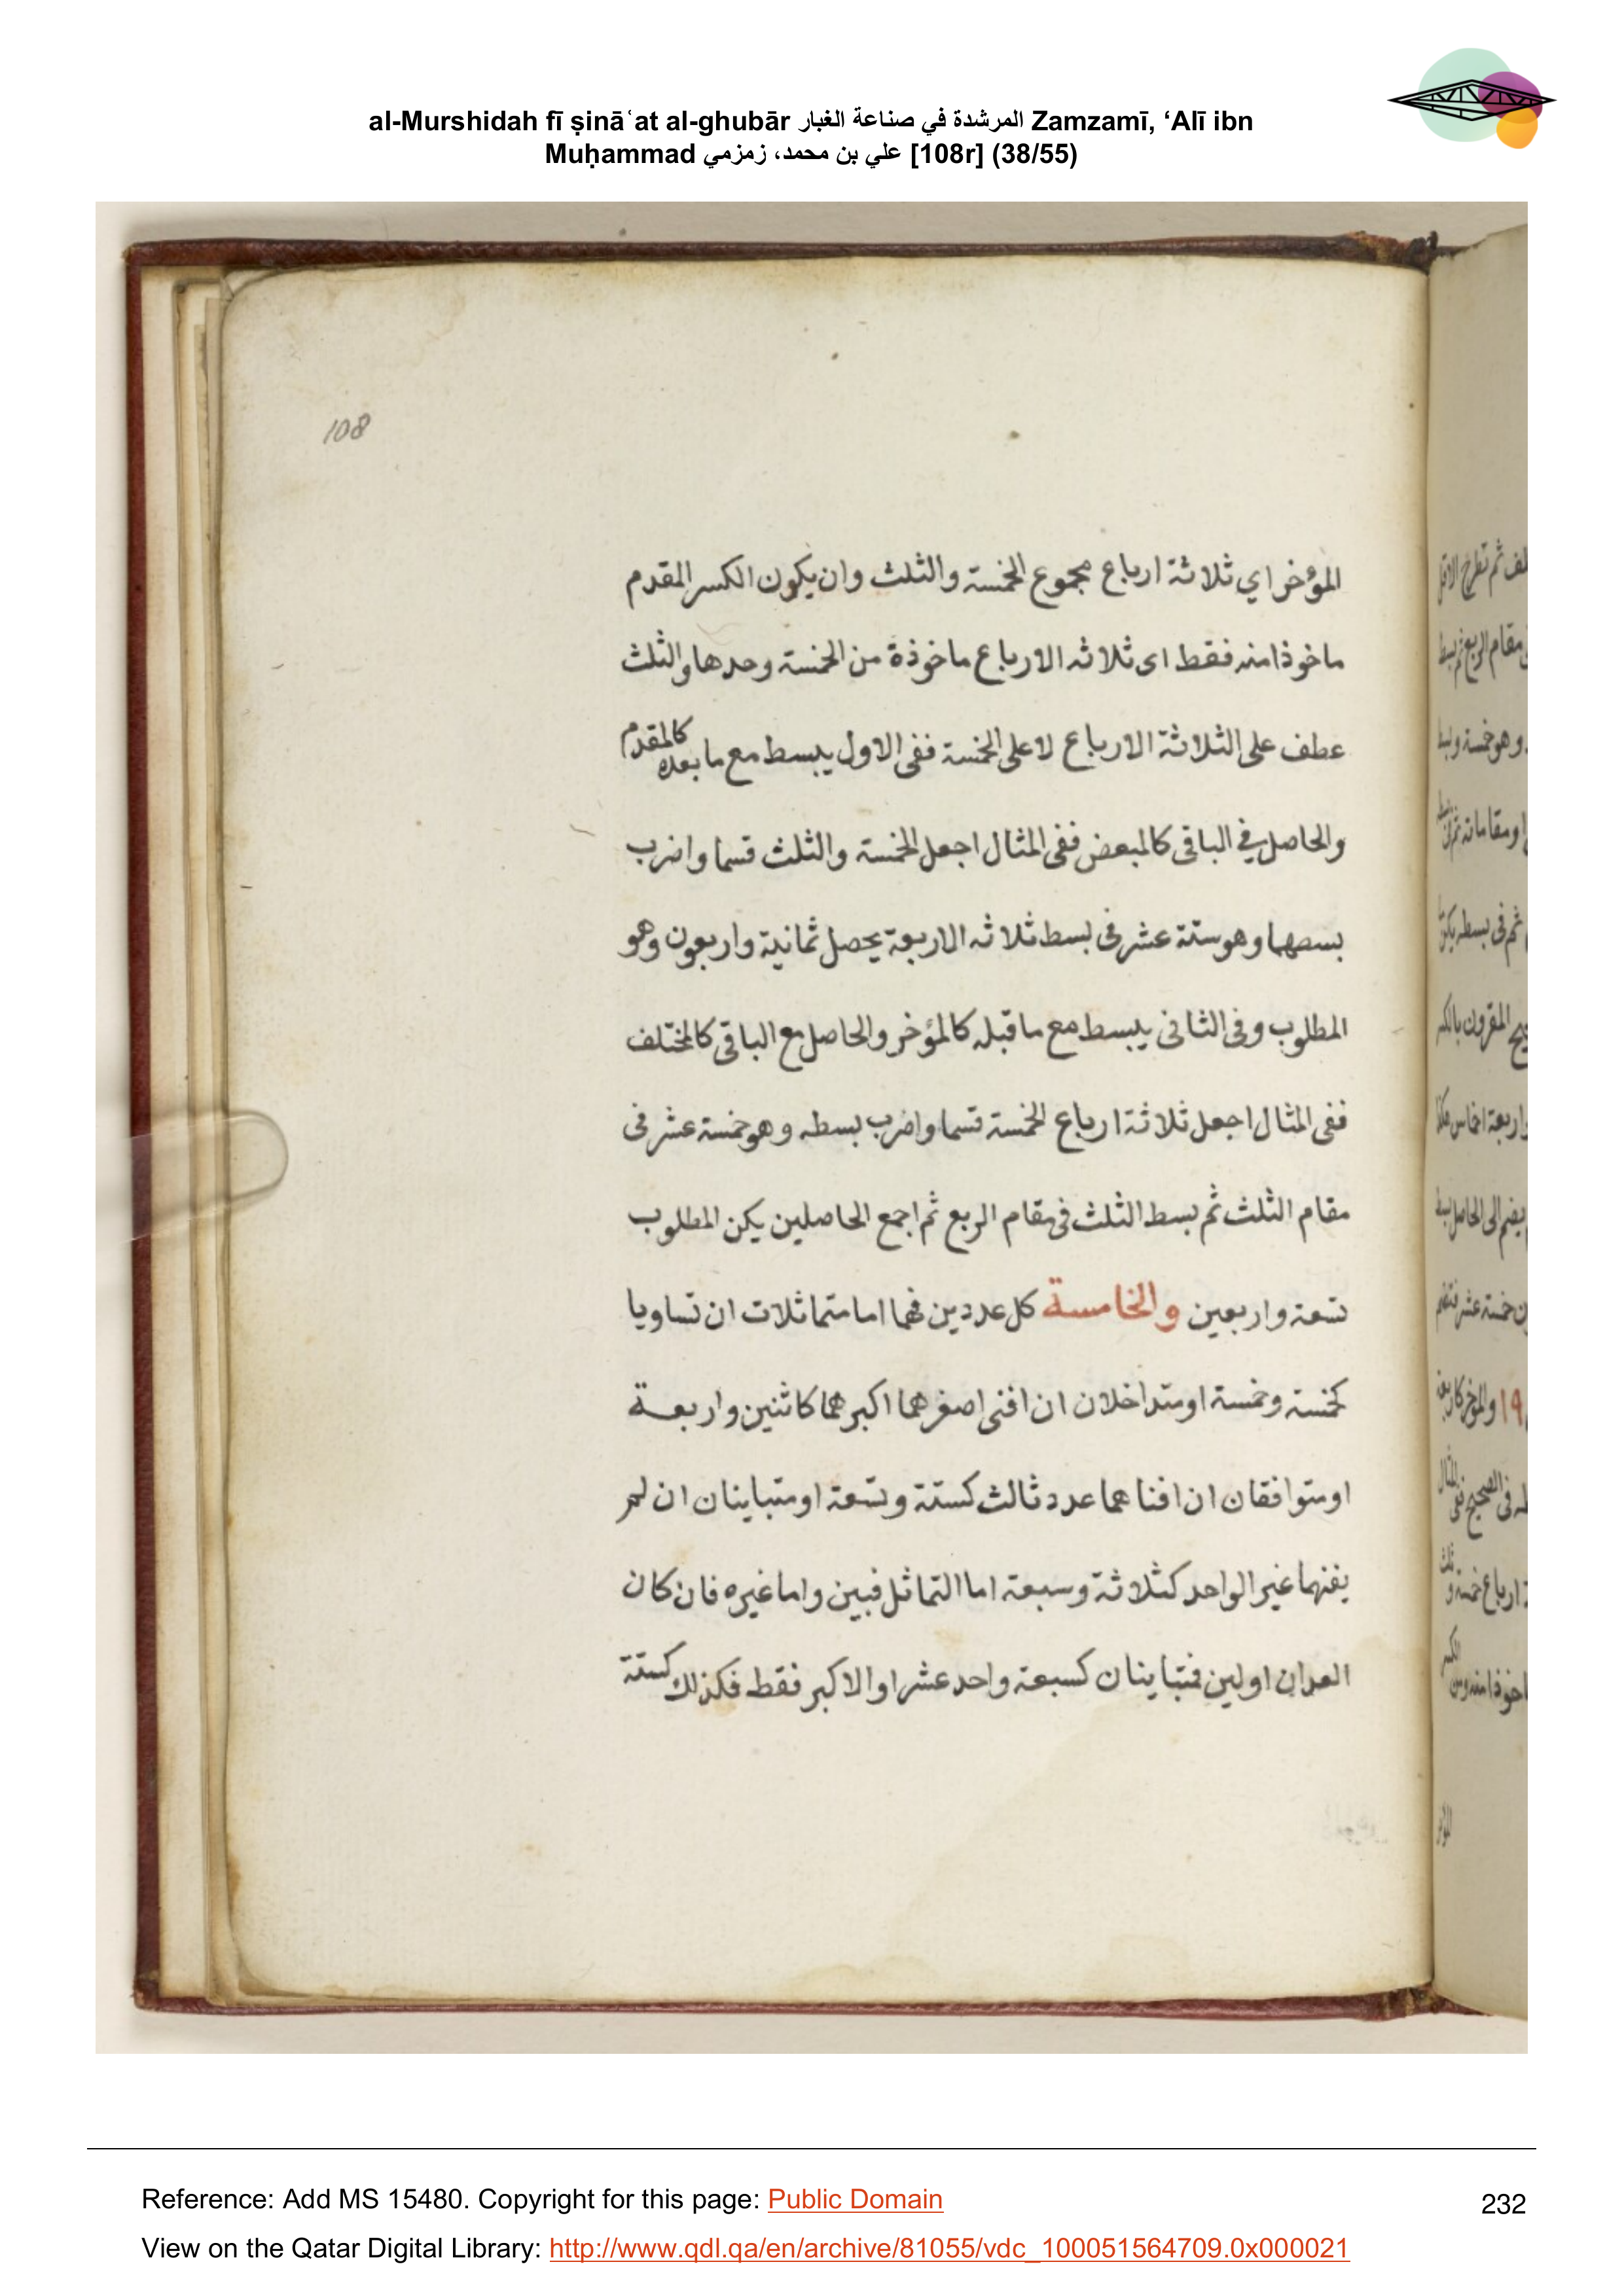 al-Murshidah fī ṣināʿat al-ghubār المرشدة في صناعة الغبار Zamzamī, ‘Alī ibn
Muḥammad علي بن محمد، زمزمي [108r] (38/55)
108
المؤخر اي ثلاثة ارباع مجموع الخمسة والثلث وان يكون الكسر المقدم
ماخوذا منه فقط اى ثلاثه الارباع ماخوذة من الخمسة وحدها والثلث
عطف على الثلاثة الارباع لا على الخمسة ففى الاول يبسط مع ما بعده كالمقدم
والحاصل في الباقى كالمبعض ففى المثال اجعل الخمسة والثلث قسما واضرب
بسصهما وهو ستة عشر فى بسط ثلاثه الاربعة يحصل ثمانية واربعون وهو
المطلوب وفى الثانى يبسط مع ما قبله كالمؤخر والحاصل مع الباقى كالمختلف
ففى المثال اجعل ثلاثة ارباع الخمسة قسما واضرب بسطه وهو خمسة عشر فى
مقام الثلث ثم بسط الثلث فى مقام الربع ثم اجمع الحاصلين يكن المطلوب
تسعة واربعين والخامسة كل عددين فهما اما متماثلات ان تساويا
كخمسة وخمسة او متداخلان ان افنى اصغرهما اكبرهما كاثنين واربعة
او متوافقان ان افناهما عدد ثالث كستة وتسعة او متباينان ان لم
يفنهما غير الواحد كثلاثة وسبعة اما التماثل فبين واما غيره فان كان
العددان اولين فمتباينان كسبعة واحد عشر او الاكبر فقط فكذلك كستة
Reference: Add MS 15480. Copyright for this page: Public Domain
232
View on the Qatar Digital Library: http://www.qdl.qa/en/archive/81055/vdc_100051564709.0x000021